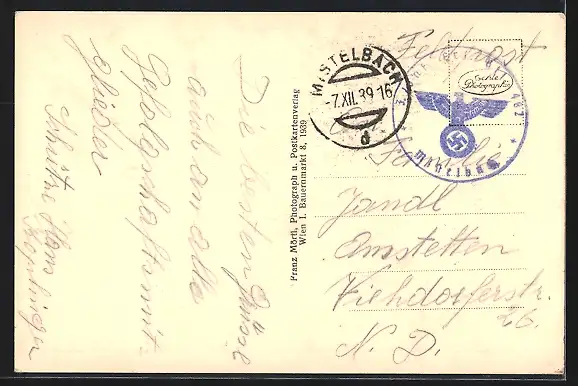 Die besten Grüße
auch an alle
Gefolgschaftsmit-
glieder
Schütze Hans
Franz Mörtl, Photograph u. Postkartenverlag
Wien I. Bauernmarkt 8, 1939
MISTELBACH
-7.XII.39 16
d
Feldpost
Echte
Photographie
482
Mistelbach
Familie
Jandl
Amstetten
Viehdorferstr.
N. D.